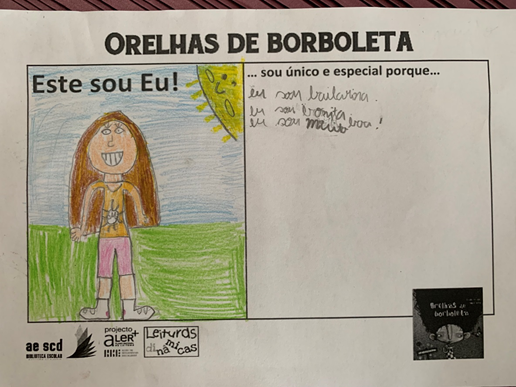 ORELHAS DE BORBOLETA
Este sou Eu!
... sou único e especial porque...
eu sou bailarina.
eu sou bonita
eu sou muito boa!
ae scd
BIBLIOTECA ESCOLAR
projecto
aLER+
Leituras
dinâmicas
Orelhas de
borboleta